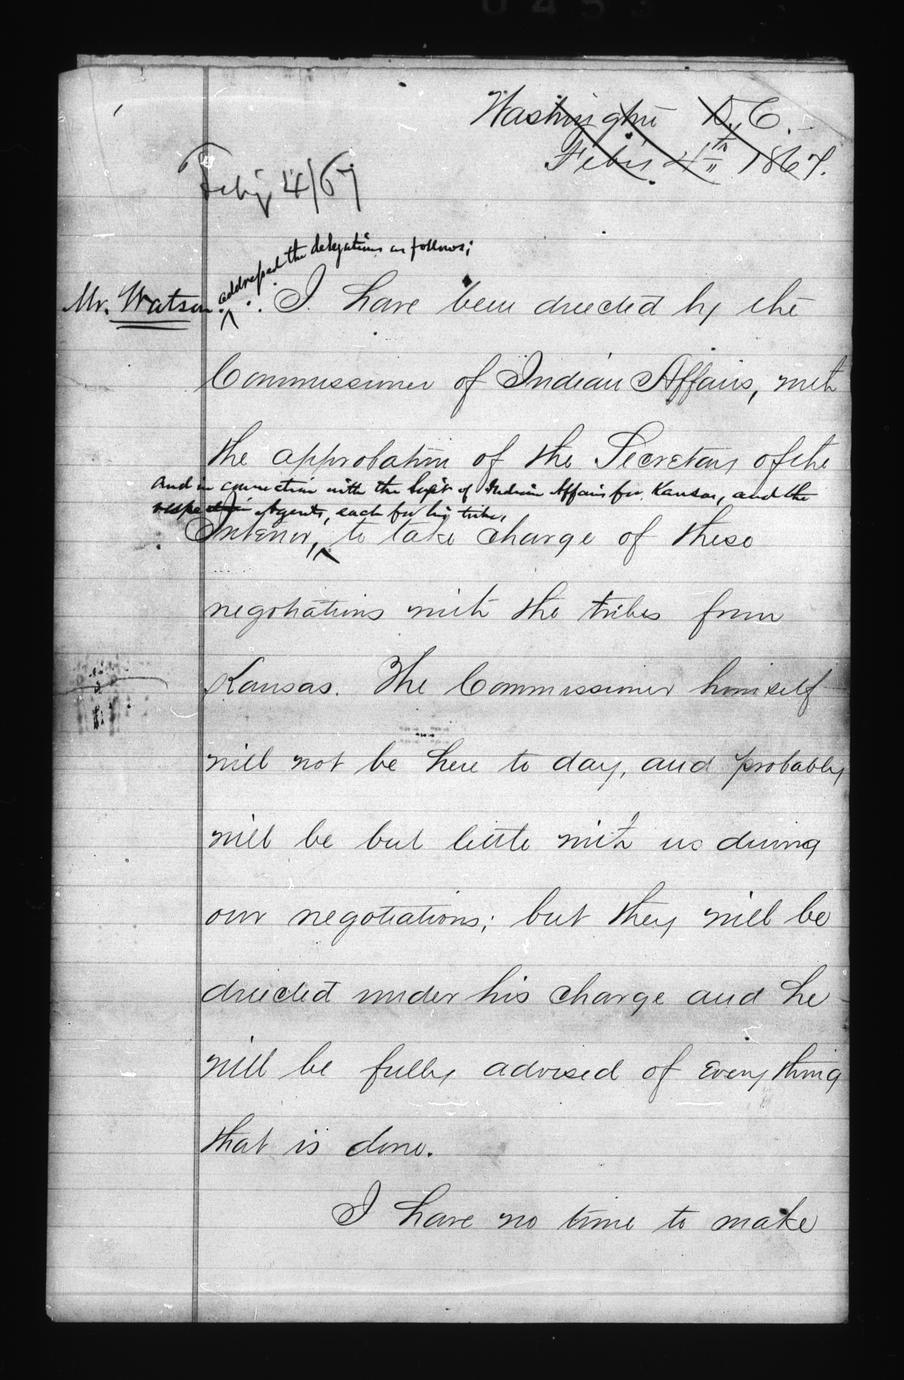 Washington D.C.
Feb'y 4th 1867.
Feb'y 4/67
addressed the delegations as follows;
Mr. Watson. I have been directed by the
Commissioner of Indian Affairs, with
the approbation of the Secretary of the
and in connection with the Supt of Indian Affairs for Kansas, and the
respective Agents, each for his tribe,
Interior, to take charge of these
negotiations with the tribes from
Kansas. The Commissioner himself
will not be here to day, and probably
will be but little with us during
our negotiations; but they will be
directed under his charge and he
will be fully advised of every thing
that is done.
I have no time to make